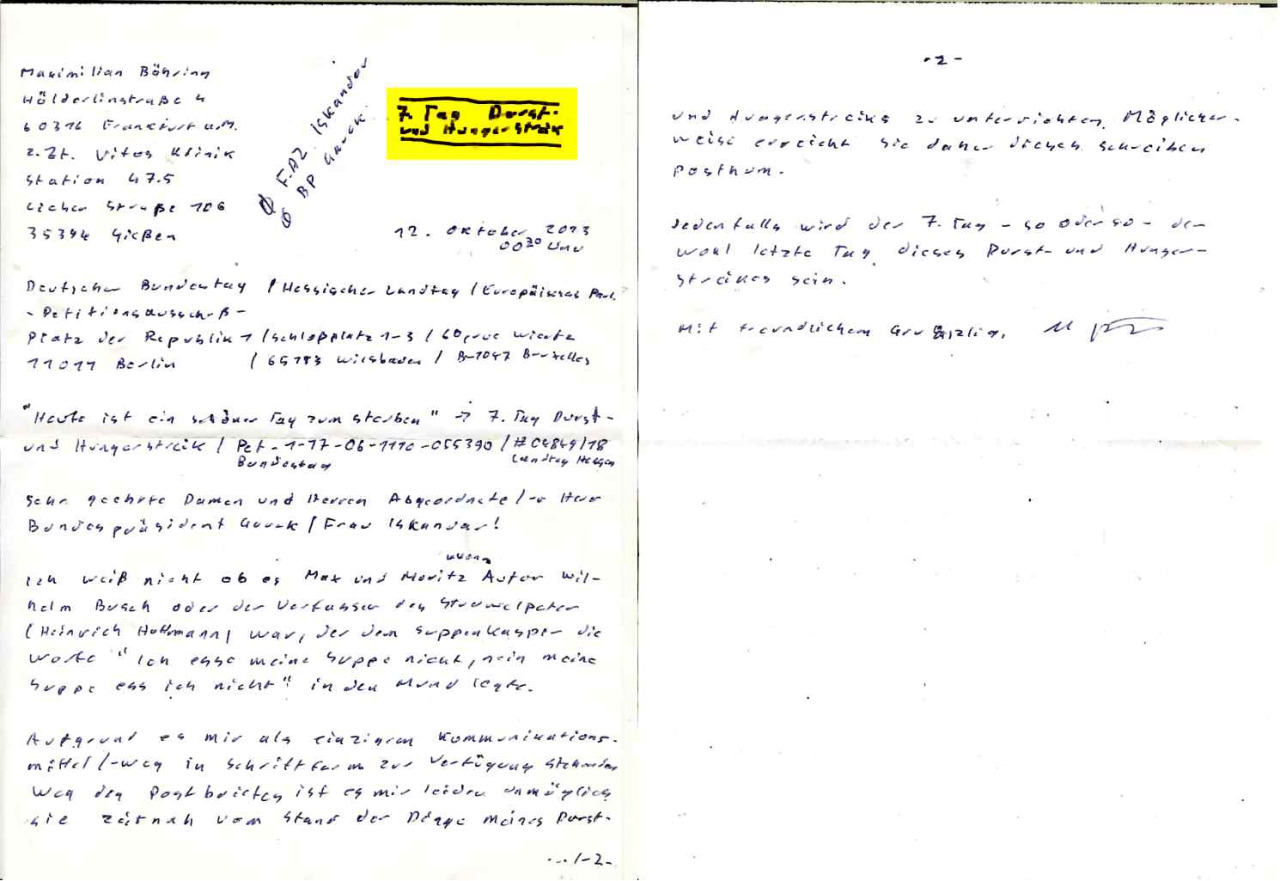 Maximilian Bähring
Hölderlinstraße 4
60316 Frankfurt a.M.
z.Zt. Vitos Klinik
Station 47.5
Licher Straße 106
35394 Gießen
Φ F.A.Z. Iskandar
Φ BP Gauck
7. Tag Durst-
und Hungerstreik
12. Oktober 2013
00:30 Uhr
Deutscher Bundestag / Hessischer Landtag / Europäisches Parl.
- Petitionsausschuß -
Platz der Republik 1 / Schloßplatz 1-3 / 60, rue Wiertz
11011 Berlin / 65183 Wiesbaden / B-1047 Bruxelles
"Heute ist ein schöner Tag zum sterben" → 7. Tag Durst-
und Hungerstreik / Pet-1-17-06-1110-055390 / #04849/18
Bundestag Landtag Hessen
Sehr geehrte Damen und Herren Abgeordnete/-r Herr
Bundespräsident Gauck / Frau Iskandar!
Ich weiß nicht ob es Max und Moritz Autor Wil-
helm Busch oder der Verfasser des Struwelpeter
(Heinrich Hoffmann) war, der dem Suppenkasper die
Worte "Ich esse meine Suppe nicht, nein meine
Suppe ess ich nicht" in den Mund legte.
Aufgrund es mir als einzigem Kommunikations-
mittel/-weg in Schriftform zur Verfügung stehenden
Weg des Postbriefes ist es mir leider unmöglich
sie zeitnah vom Stand der Dinge meines Durst-
.../-2-
-2-
und Hungerstreiks zu unterrichten. Möglicher-
weise erreicht Sie daher dieses schreiben
posthum.
Jedenfalls wird der 7. Tag - so oder so - der
wohl letzte Tag dieses Durst- und Hunger-
streikes sein.
Mit freundlichem